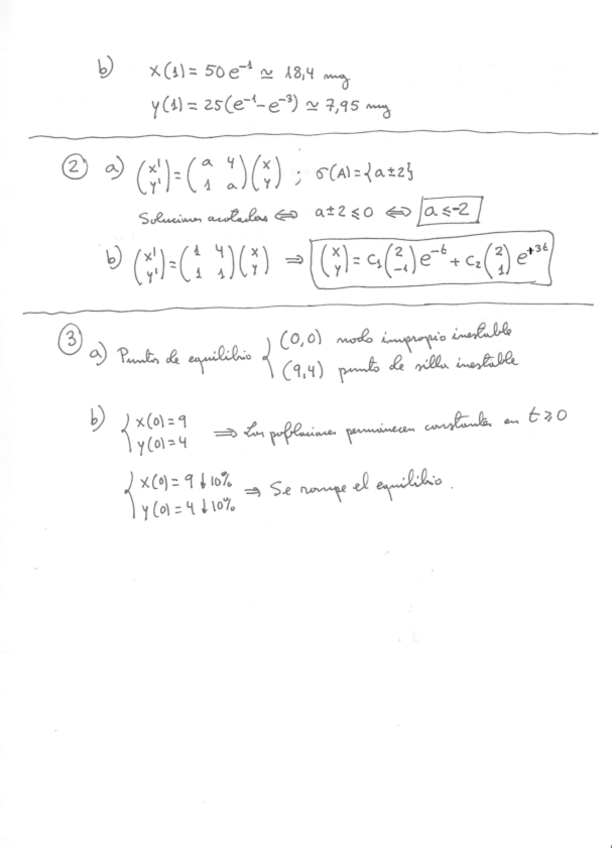 b) x(1) = 50e⁻¹ ≃ 18,4 mg
y(1) = 25(e⁻¹-e⁻³) ≃ 7,95 mg
② a) (x' y') = (a 4 1 a)(x y) ; σ(A) = {a±2}
Soluciones acotadas ⇔ a±2 ≤ 0 ⇔ a ≤ -2
b) (x' y') = (1 4 1 1)(x y) ⇒ (x y) = C₁(2 -1)e⁻ᵗ + C₂(2 1)e⁺³ᵗ
③ a) Puntos de equilibrio { (0,0) nodo impropio inestable
(9,4) punto de silla inestable
b) { x(0) = 9
y(0) = 4 ⇒ Las poblaciones permanecen constantes en t ≥ 0
{ x(0) = 9 ↓ 10%
y(0) = 4 ↓ 10% ⇒ Se rompe el equilibrio.